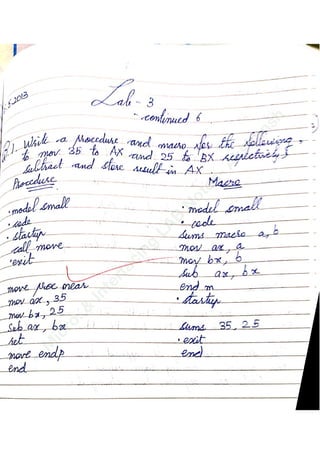 .5.2013
Lab - 3
continued 6
Q1. Write a procedure and macro for the following,
to mov 35 to AX and 25 to BX respectively &
subtract and store result in AX.
Procedure
.model small
.code
.startup
call move
.exit
move proc near
mov ax, 35
mov bx, 25
Sub ax, bx
ret
move endp
end
Macro
.model small
.code
sums macro a, b
mov ax, a
mov bx, b
sub ax, bx
end m
.startup
sums 35, 25
.exit
end